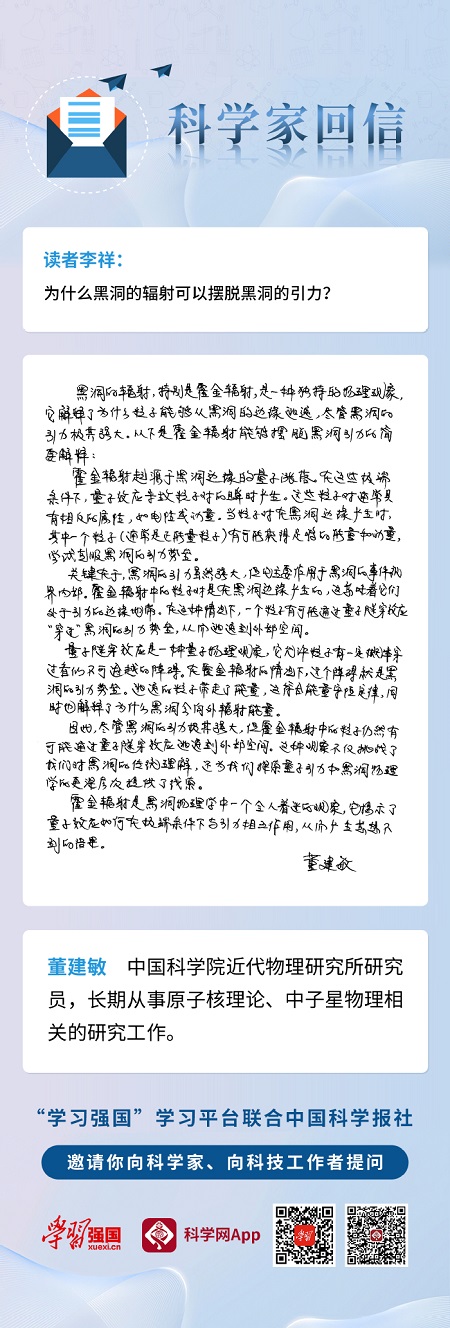 科学家回信
读者李祥：
为什么黑洞的辐射可以摆脱黑洞的引力？
黑洞的辐射，特别是霍金辐射，是一种独特的物理现象，
它解释了为什么粒子能够从黑洞的边缘逃逸，尽管黑洞的
引力极其强大。以下是霍金辐射能够摆脱黑洞引力的简
要解释：
霍金辐射起源于黑洞边缘的量子涨落。在这些极端
条件下，量子效应导致粒子对的瞬时产生。这些粒子对通常具
有相反的属性，如电荷或动量。当粒子对在黑洞边缘产生时，
其中一个粒子（通常是正能量粒子）有可能获得足够的能量和动量，
尝试克服黑洞的引力势垒。
关键在于，黑洞的引力虽然强大，但它主要作用于黑洞的事件视
界内部。霍金辐射中的粒子对是在黑洞边缘产生的，这意味着它们
处于引力的边缘地带。在这种情况下，一个粒子有可能通过量子隧穿效应
“穿过”黑洞的引力势垒，从而逃逸到外部空间。
量子隧穿效应是一种量子物理现象，它允许粒子有一定概率穿
过看似不可逾越的障碍。在霍金辐射的情况下，这个障碍就是黑
洞的引力势垒。逃逸的粒子带走了能量，这符合能量守恒定律，同
时也解释了为什么黑洞会向外辐射能量。
因此，尽管黑洞的引力极其强大，但霍金辐射中的粒子仍然有
可能通过量子隧穿效应逃逸到外部空间。这种现象不仅挑战了
我们对黑洞的传统理解，还为我们探索量子引力和黑洞物理
学的更深层次提供了线索。
霍金辐射是黑洞物理学中一个令人着迷的现象，它揭示了
量子效应如何在极端条件下与引力相互作用，从而产生意想不
到的结果。
董建敏
董建敏 中国科学院近代物理研究所研究
员，长期从事原子核理论、中子星物理相
关的研究工作。
“学习强国”学习平台联合中国科学报社
邀请你向科学家、向科技工作者提问
学习强国
xuexi.cn
科学网App